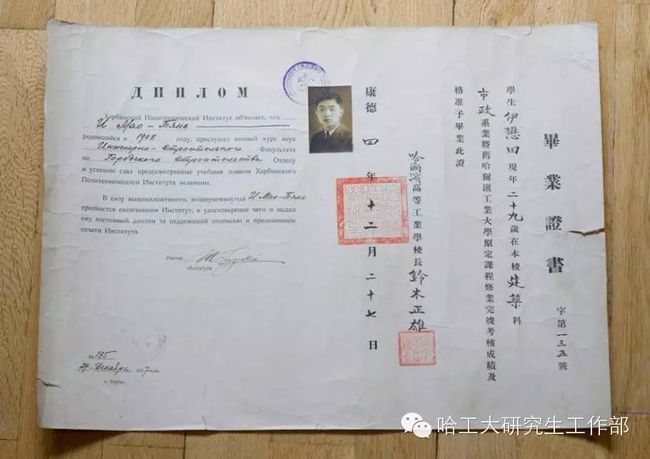 ДИПЛОМ
Харбинский Политехнический Институт объявляет, что
И Мао-Тянь
родившийся в 1908 году, прослушал полный курс наук
Инженерно-Строительного Факультета
по Городского Строительства Отделу
и успешно сдал предусмотренные учебным планом Харбинского
Политехнического Института экзамены.
В силу вышеизложенного, поименованный И Мао-Тянь
признается окончившим Институт, в удостоверение чего и выдан
ему настоящий диплом за надлежащей подписью и приложением
печати Института.
Ректор
Института
№ 135
27 Декабря 1937 г.
г. Харбин.
畢業證書
字第一三五號
學生伊懋田現年二十九歲在本校建築科
市政系業將舊哈爾濱工業大學原定課程修業完竣考核成績及
格准予畢業此證
哈爾濱高等工業學校長鈴木正雄
康德四年十二月二十七日
哈工大研究生工作部